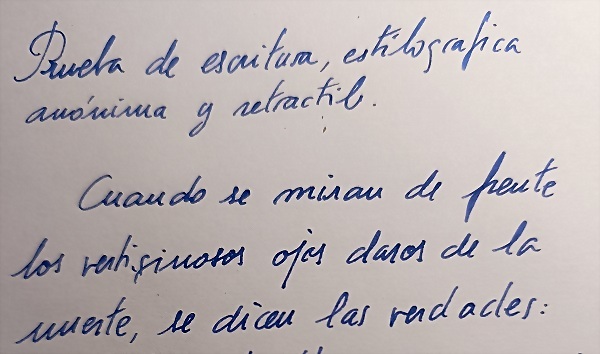 Prueba de escritura, estilografica
anónima y retractil.
Cuando se miran de frente
los vertiginosos ojos claros de la
muerte, se dicen las verdades: